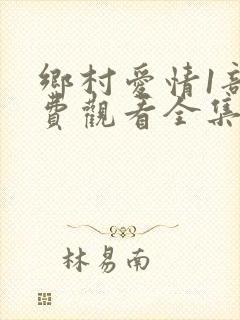 鄉村愛情1部
費觀看全集
林易南